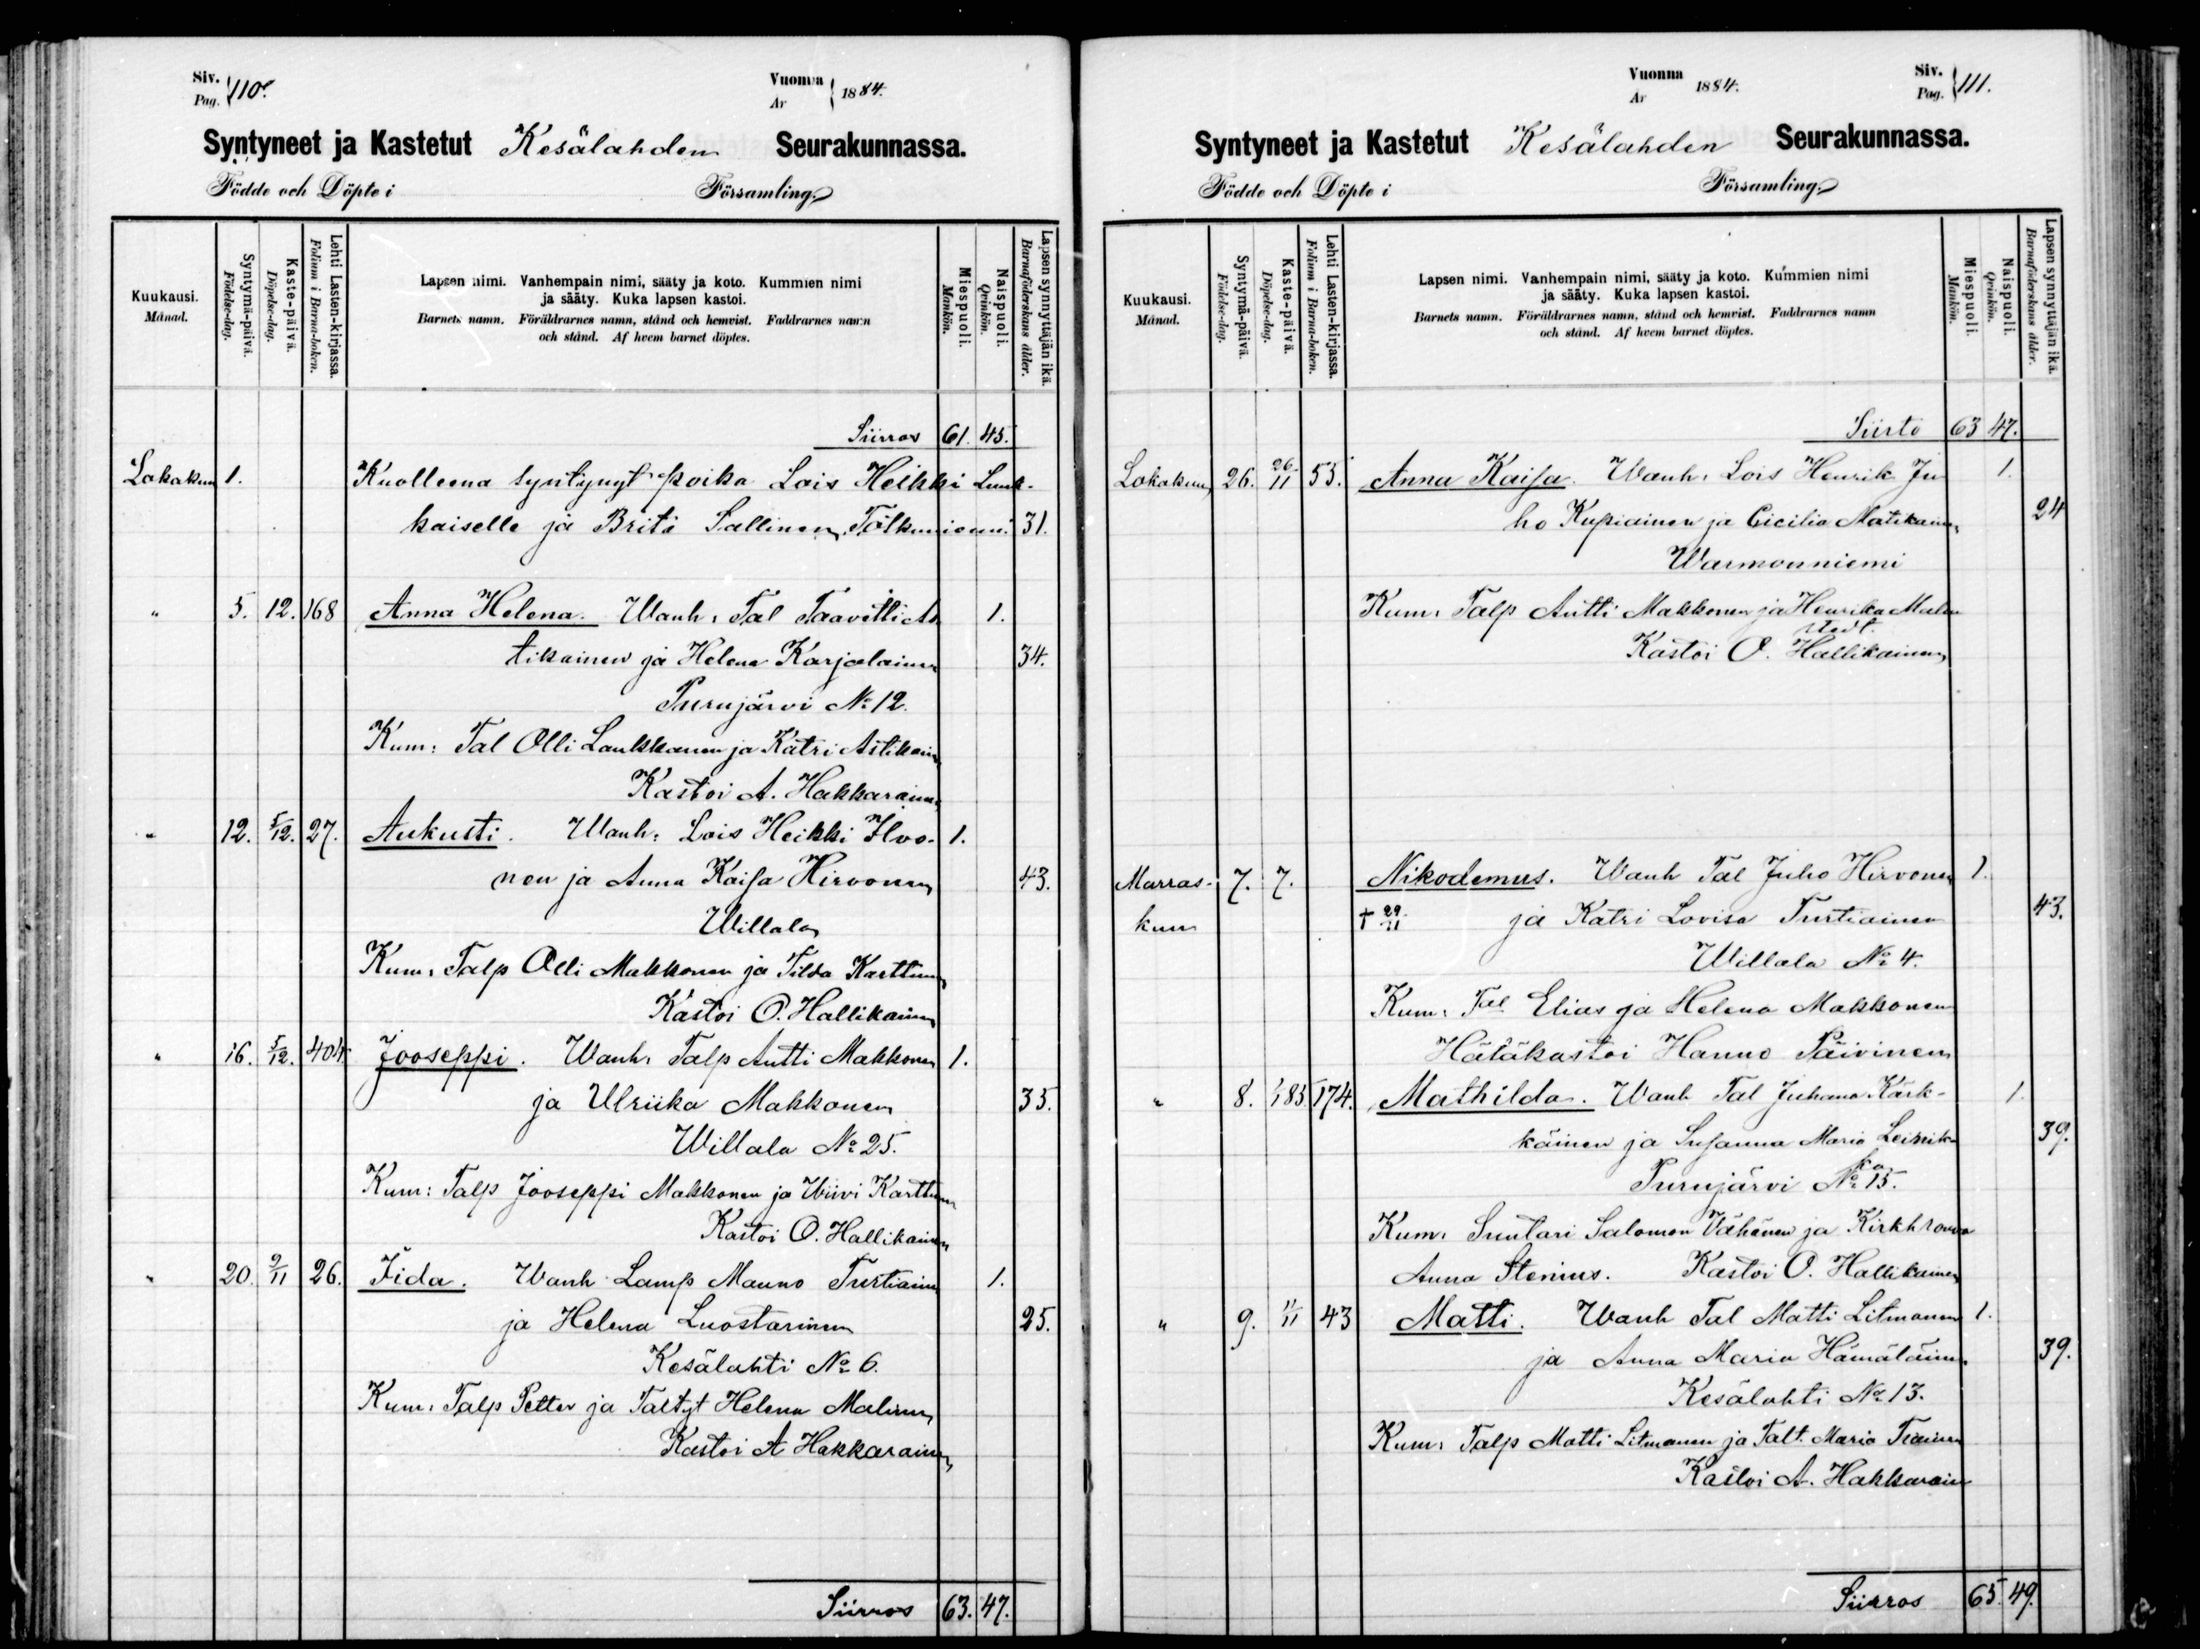 Siv. Pag. 110.
Vuonna År 1884.
Syntyneet ja Kastetut Kesälahden Seurakunnassa.
Födde och Döpte i Församling.
Kuukausi. Månad.
Syntymä-päivä. Födelse-dag.
Kaste-päivä. Döpelse-dag.
Lehti Lasten-kirjassa. Folium i Barna-boken.
Lapsen nimi. Vanhempain nimi, sääty ja koto. Kummien nimi
ja sääty. Kuka lapsen kastoi.
Barnets namn. Föräldrarnes namn, stånd och hemvist. Faddrarnes namn
och stånd. Af hvem barnet döptes.
Miespuoli. Mankön.
Naispuoli. Qvinkön.
Lapsen synnyttäjän ikä. Barnaföderskans ålder.
Siirros 61. 45.
Lokakuu 1. Kuolleena syntynyt poika Lois Heikki
kaiselle ja Brita Sallinen, 31.
" 5. 12. 168 Anna Helena. Wanh: Tal Taavetti As 1.
tikainen ja Helena Karjalainen 34.
Purujärvi No 12.
Kum: Tal Olli Laukkanen ja Katri Astikain
Kastoi A. Hakkarainen
" 12. 5/12. 27. Aukusti. Wanh: Lois Heikki Ilvo- 1.
nen ja Anna Kaisa Hirvonen 43.
Willala
Kum: Talp Olli Makkonen ja Tilda Karttunen
Kastoi O. Hallikainen
" 16. 5/12. 404 Jooseppi. Wanh: Talp Antti Makkonen 1.
ja Ulriika Makkonen 35.
Willala No 25.
Kum: Talp Jooseppi Makkonen ja Wiivi Karttunen
Kastoi O. Hallikainen
" 20. 9/11 26. Iida. Wanh Lamp Mauno Turtiain 1.
ja Helena Luostarinen 25.
Kesälahti No 6.
Kum: Talp Petter ja Taltyt Helena Malinen
Kastoi A Hakkarainen
Siirros 63. 47.
Vuonna År 1884.
Siv. Pag. 111.
Syntyneet ja Kastetut Kesälahden Seurakunnassa.
Födde och Döpte i Församling.
Kuukausi. Månad.
Syntymä-päivä. Födelse-dag.
Kaste-päivä. Döpelse-dag.
Lehti Lasten-kirjassa. Folium i Barna-boken.
Lapsen nimi. Vanhempain nimi, sääty ja koto. Kummien nimi
ja sääty. Kuka lapsen kastoi.
Barnets namn. Föräldrarnes namn, stånd och hemvist. Faddrarnes namn
och stånd. Af hvem barnet döptes.
Miespuoli. Mankön.
Naispuoli. Qvinkön.
Lapsen synnyttäjän ikä. Barnaföderskans ålder.
Siirto 63 47.
Lokakuu 26. 26/11 53. Anna Kaisa. Wanh: Lois Henrik Ju 1.
ho Kupiainen ja Cicilia Matikainen 24
Warmonniemi
Kum: Talp Antti Makkonen ja Henrika Malm
stedt.
Kastoi O. Hallikainen
Marras- 7. 7. Nikodemus. Wanh Tal Juho Hirvonen 1.
kuu † 29/11 ja Katri Lovisa Turtiainen 43.
Willala No 4.
Kum: Tal Elias ja Helena Makkonen
Hätäkastoi Hanno Päivinen
" 8. 1/1 85. 174. Mathilda. Wanh Tal Juhana Kärk- 1.
käinen ja Susanna Maria Leinik- 39.
ka
Purujärvi No 15.
Kum: Suutari Salomon Vähänen ja Kirkhrouva
Anna Stenius. Kastoi O. Hallikainen
" 9. 11/11 43 Matti. Wanh Tal Matti Litmanen 1.
ja Anna Maria Hämäläinen 39.
Kesälahti No 13.
Kum: Talp Matti Litmanen ja Talt. Maria Tiainen
Kastoi A. Hakkarain
Siirros 65. 49.